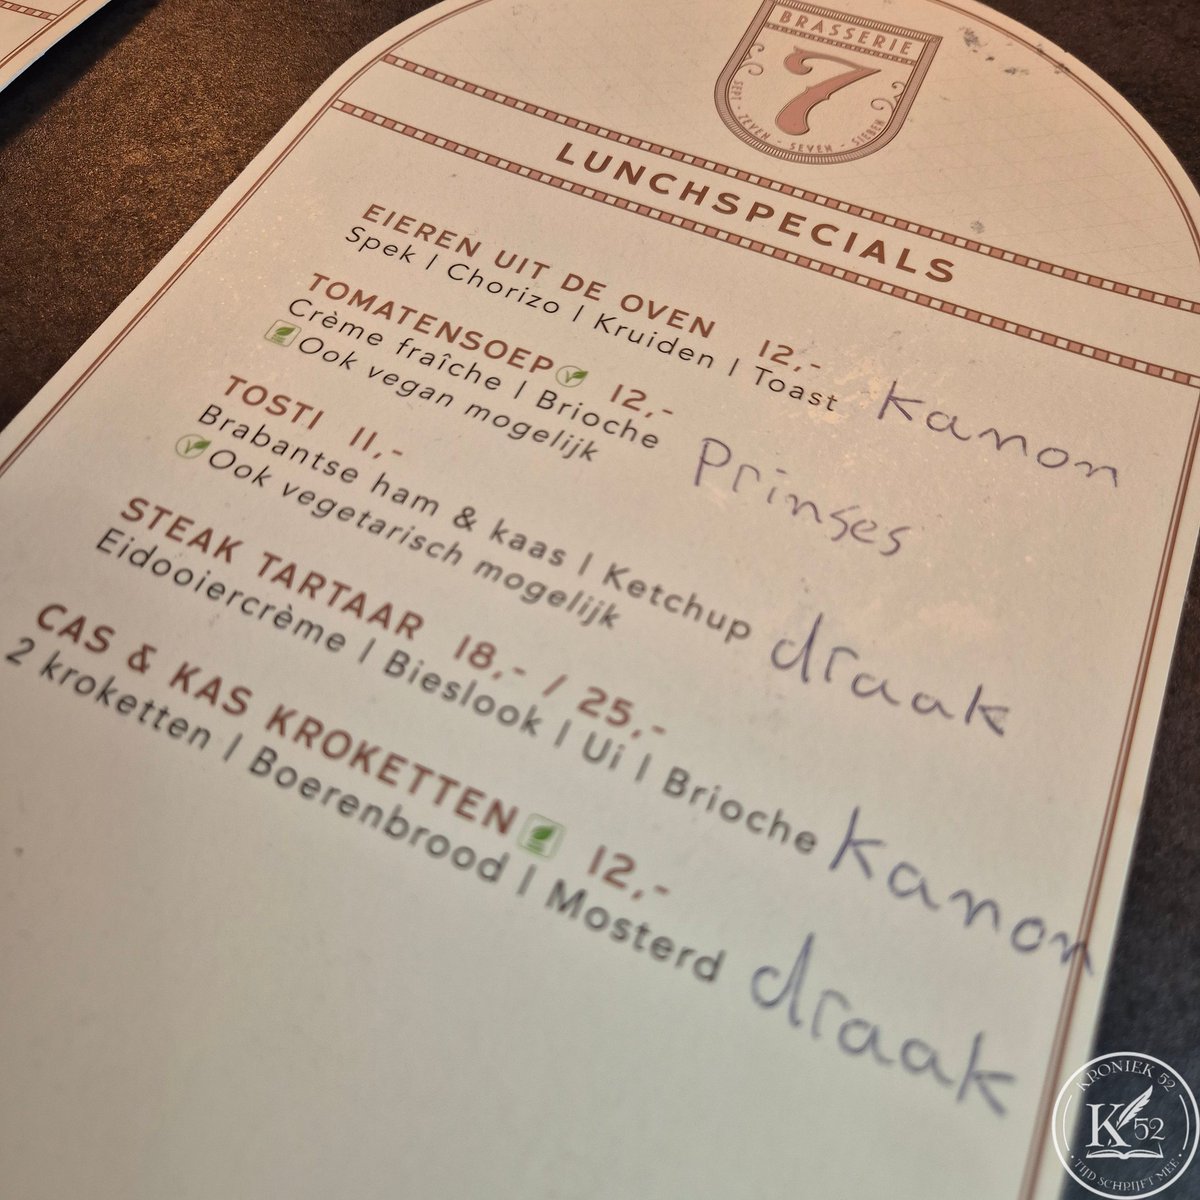 BRASSERIE
7
SEPT - ZEVEN - SEVEN - SIEBEN
LUNCHSPECIALS
EIEREN UIT DE OVEN 12,-
Spek | Chorizo | Kruiden | Toast kanon
TOMATENSOEP 12,-
Crème fraîche | Brioche Prinses
Ook vegan mogelijk
TOSTI 11,-
Brabantse ham & kaas | Ketchup draak
Ook vegetarisch mogelijk
STEAK TARTAAR 18,- / 25,-
Eidooiercrème | Bieslook | Ui | Brioche kanon
CAS & KAS KROKETTEN 12,-
2 kroketten | Boerenbrood | Mosterd draak
KRONIEK 52
K 52
TIJD SCHRIJFT MEE